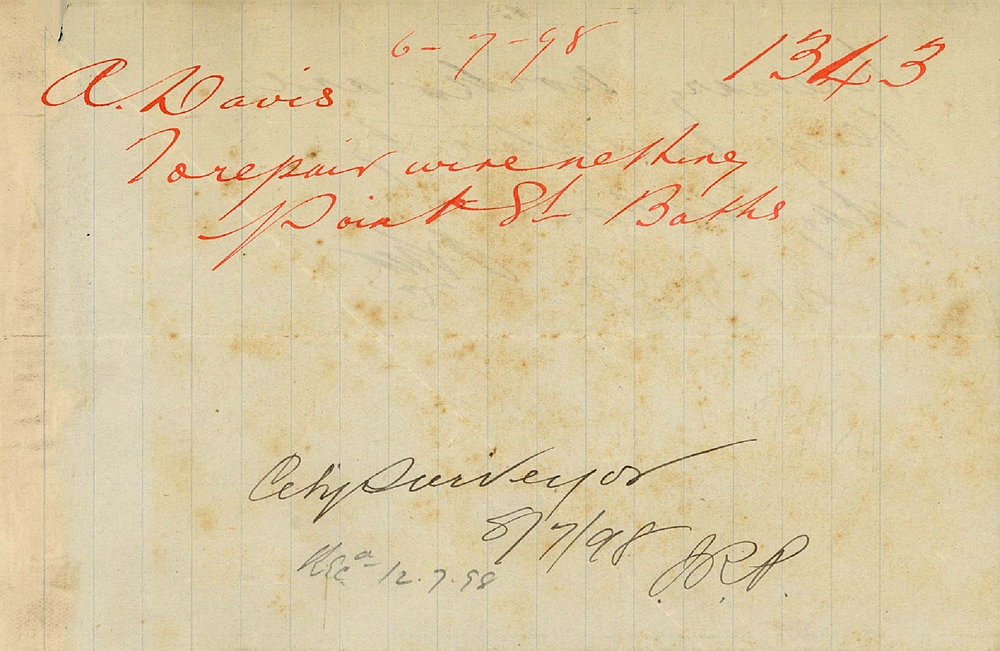 6-7-98
1343
A. Davis
To repair wire netting
Point St Baths
City Surveyor
8/7/98
J.R.P.
12.7.98